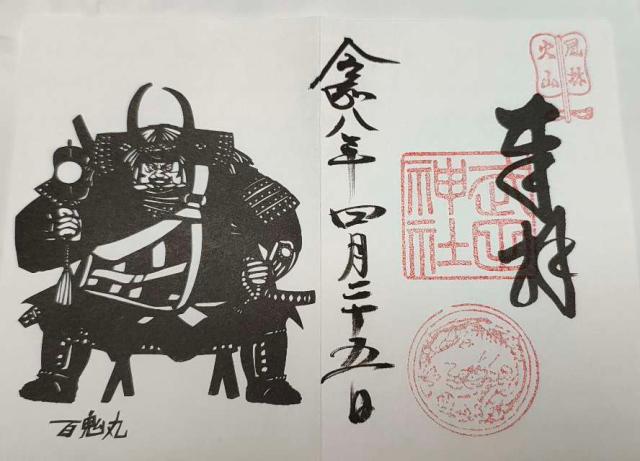 風林
火山
奉拝
武田
神社
令和八年四月二十五日
百鬼丸